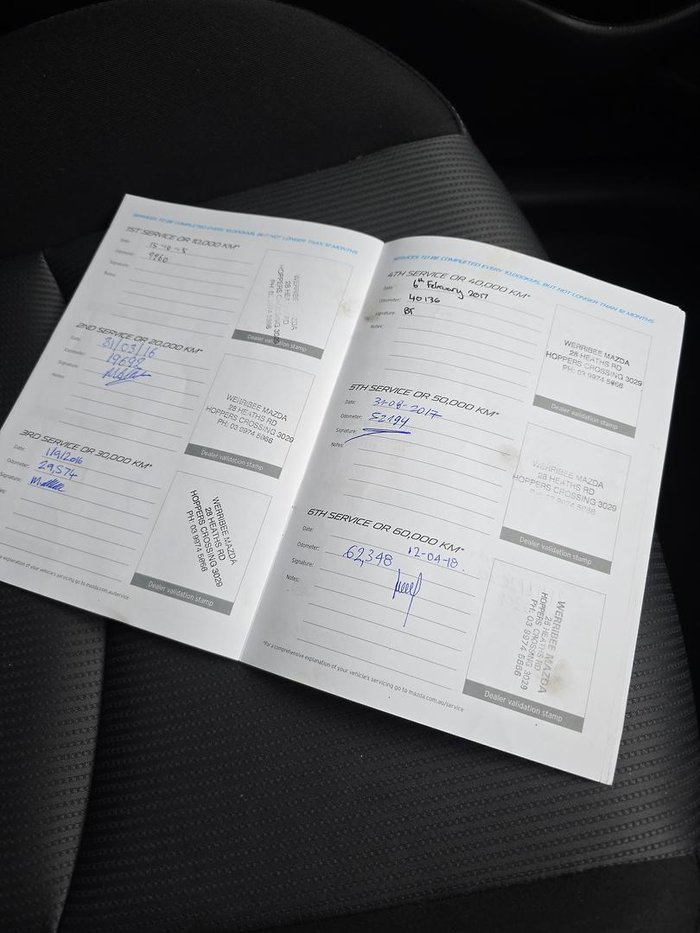 SERVICES TO BE COMPLETED EVERY 10,000KMS, BUT NOT LONGER THAN 12 MONTHS
1ST SERVICE OR 10,000 KM*
Date:
Odometer: 9960
Signature:
Notes:
WERRIBEE MAZDA
28 HEATHS RD
HOPPERS CROSSING 3029
PH: 03 9974 5866
Dealer validation stamp
2ND SERVICE OR 20,000 KM*
Date: 31/03/16
Odometer: 19692
Signature:
Notes:
WERRIBEE MAZDA
28 HEATHS RD
HOPPERS CROSSING 3029
PH: 03 9974 5866
Dealer validation stamp
3RD SERVICE OR 30,000 KM*
Date: 1/9/2016
Odometer: 29,574
Signature:
Notes:
WERRIBEE MAZDA
28 HEATHS RD
HOPPERS CROSSING 3029
PH: 03 9974 5866
Dealer validation stamp
explanation of your vehicle's servicing go to mazda.com.au/service
SERVICES TO BE COMPLETED EVERY 10,000KMS, BUT NOT LONGER THAN 12 MONTHS
4TH SERVICE OR 40,000 KM*
Date: 6th February 2017
Odometer: 40136
Signature: BT
Notes:
WERRIBEE MAZDA
28 HEATHS RD
HOPPERS CROSSING 3029
PH: 03 9974 5866
Dealer validation stamp
5TH SERVICE OR 50,000 KM*
Date: 31-08-2017
Odometer: 52194
Signature:
Notes:
WERRIBEE MAZDA
28 HEATHS RD
HOPPERS CROSSING 3029
PH: 03 9974 5866
Dealer validation stamp
6TH SERVICE OR 60,000 KM*
Date:
Odometer: 62,348 12-04-18.
Signature:
Notes:
WERRIBEE MAZDA
28 HEATHS RD
HOPPERS CROSSING 3029
PH: 03 9974 5866
Dealer validation stamp
*For a comprehensive explanation of your vehicle's servicing go to mazda.com.au/service